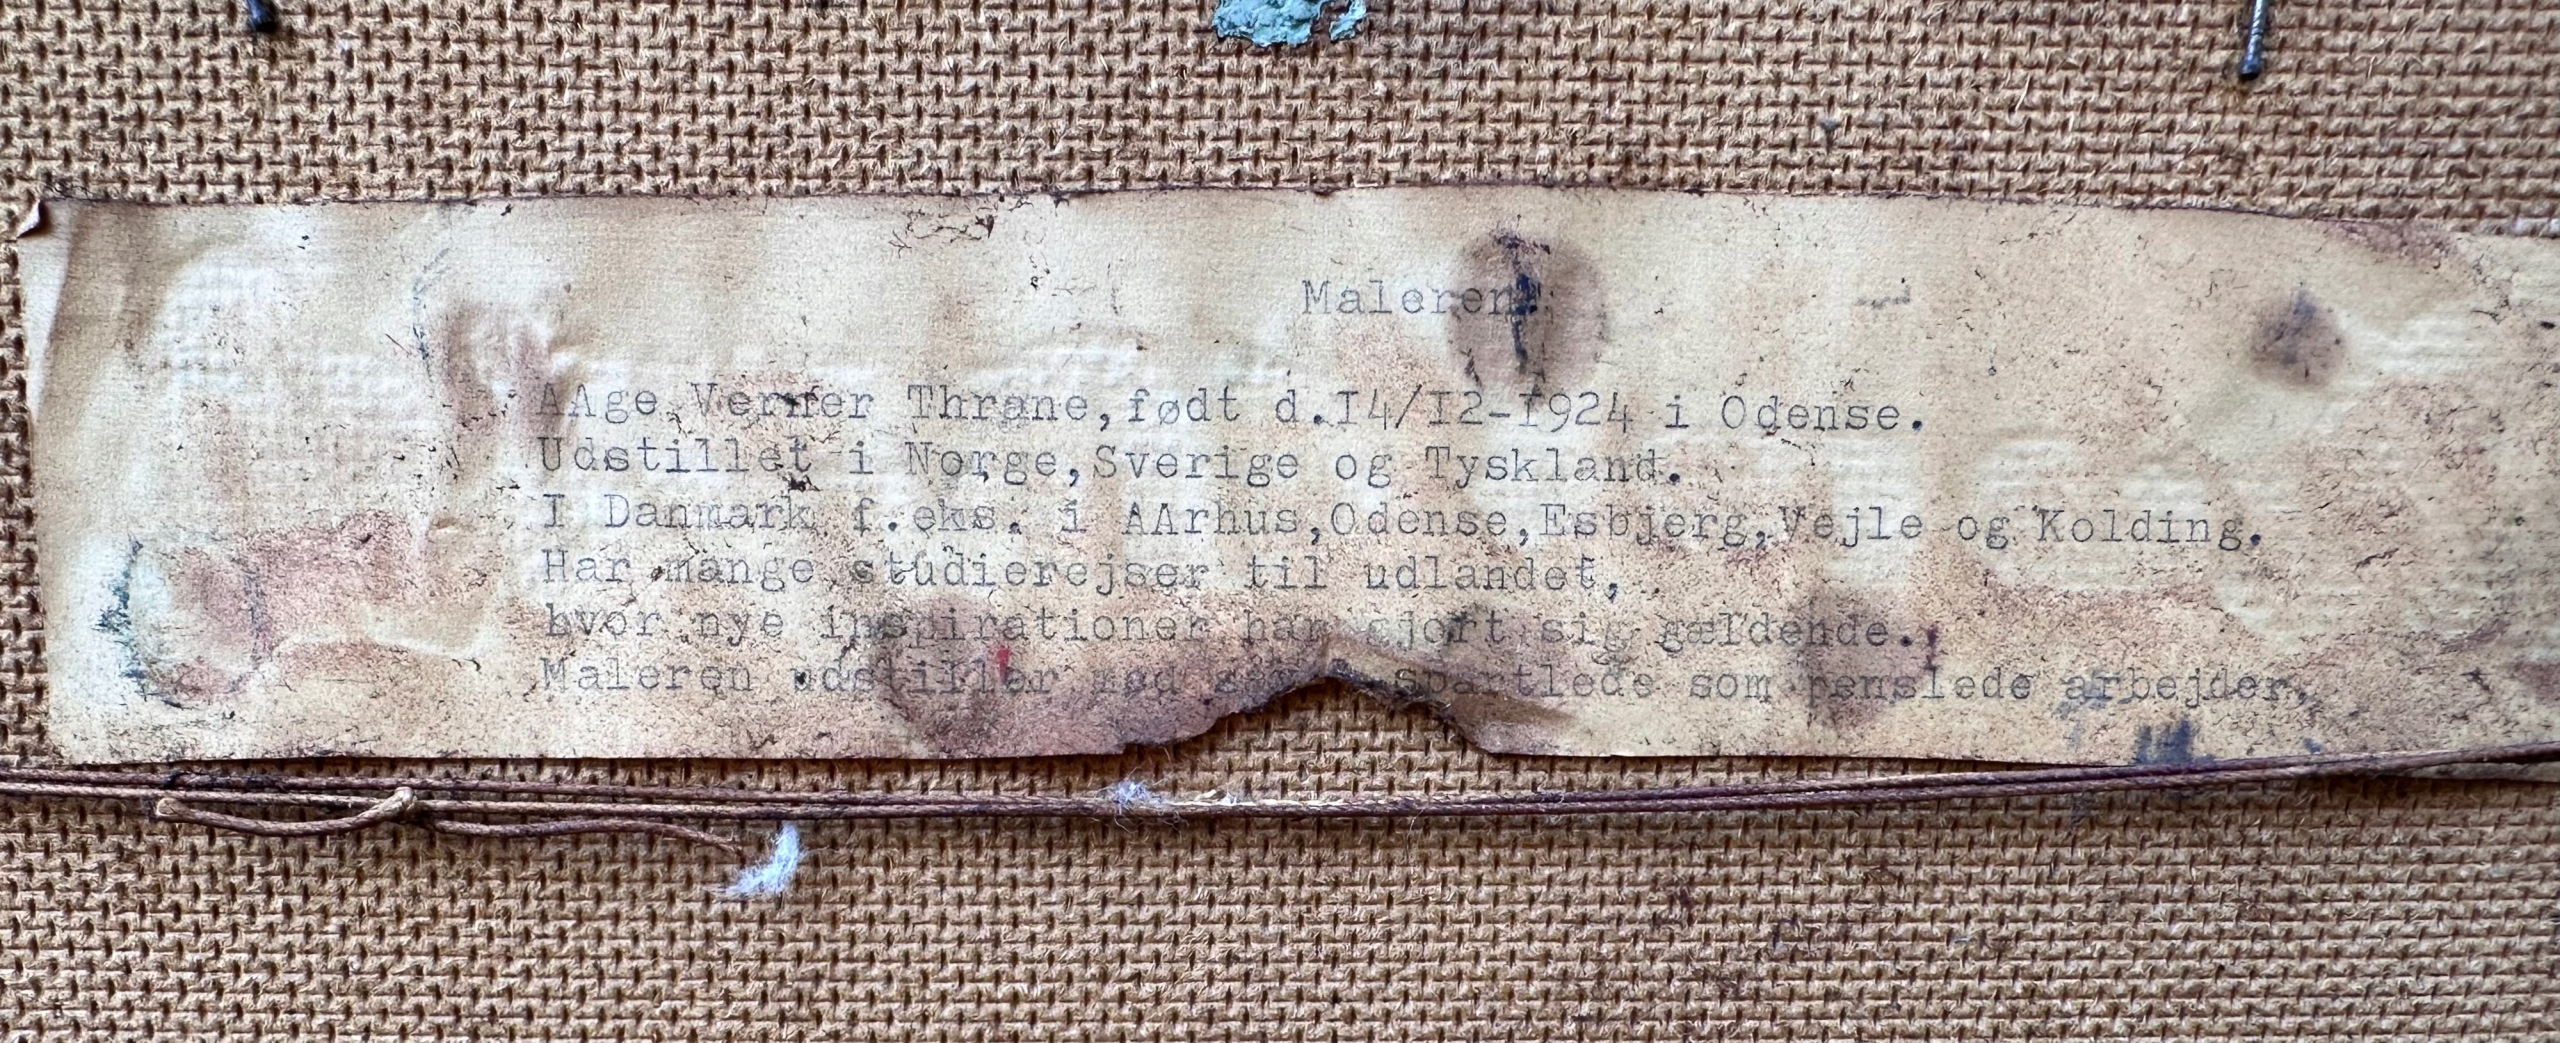 Maleren:
AAge Verner Thrane,født d.I4/I2-I924 i Odense.
Udstillet i Norge,Sverige og Tyskland.
I Danmark f.eks. i AArhus,Odense,Esbjerg,Vejle og Kolding.
Har mange studierejser til udlandet,
hvor nye inspirationer har gjort sig gældende.
Maleren udstiller med spartlede som penslede arbejder.